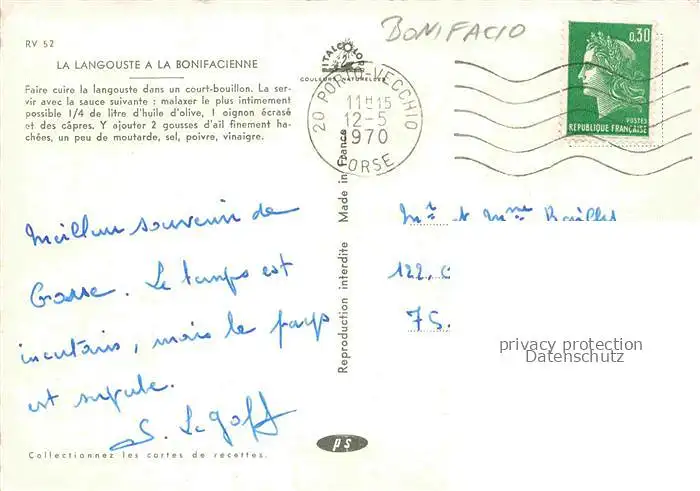 RV 52
BONIFACIO
LA LANGOUSTE A LA BONIFACIENNE
Faire cuire la langouste dans un court-bouillon. La ser-
vir avec la sauce suivante : malaxer le plus intimement
possible 1/4 de litre d'huile d'olive, 1 oignon écrasé
et des câpres. Y ajouter 2 gousses d'ail finement ha-
chées, un peu de moutarde, sel, poivre, vinaigre.
ITALCOLOR
COULEURS NATURELLES
20 PORTO-VECCHIO
11H15
12-5
1970
CORSE
0,30
POSTES
REPUBLIQUE FRANÇAISE
Meilleur souvenir de
Corse. Le temps est
incertain, mais le pays
est superbe.
S. Le Goff
Reproduction interdite Made in France
Mr et Mme
122,
75.
privacy protection
Datenschutz
ps
Collectionnez les cartes de recettes.